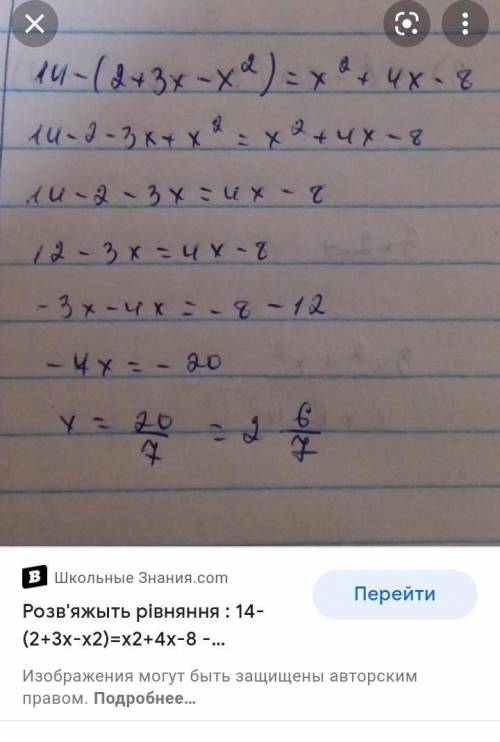 14-(2+3x-x²)=x²+4x-8
14-2-3x+x²=x²+4x-8
14-2-3x=4x-8
12-3x=4x-8
-3x-4x=-8-12
-4x=-20
x=20/7=2 6/7
B Школьные Знания.com
Перейти
Розв'яжыть рівняння : 14-
(2+3x-x2)=x2+4x-8 -...
Изображения могут быть защищены авторским
правом. Подробнее...